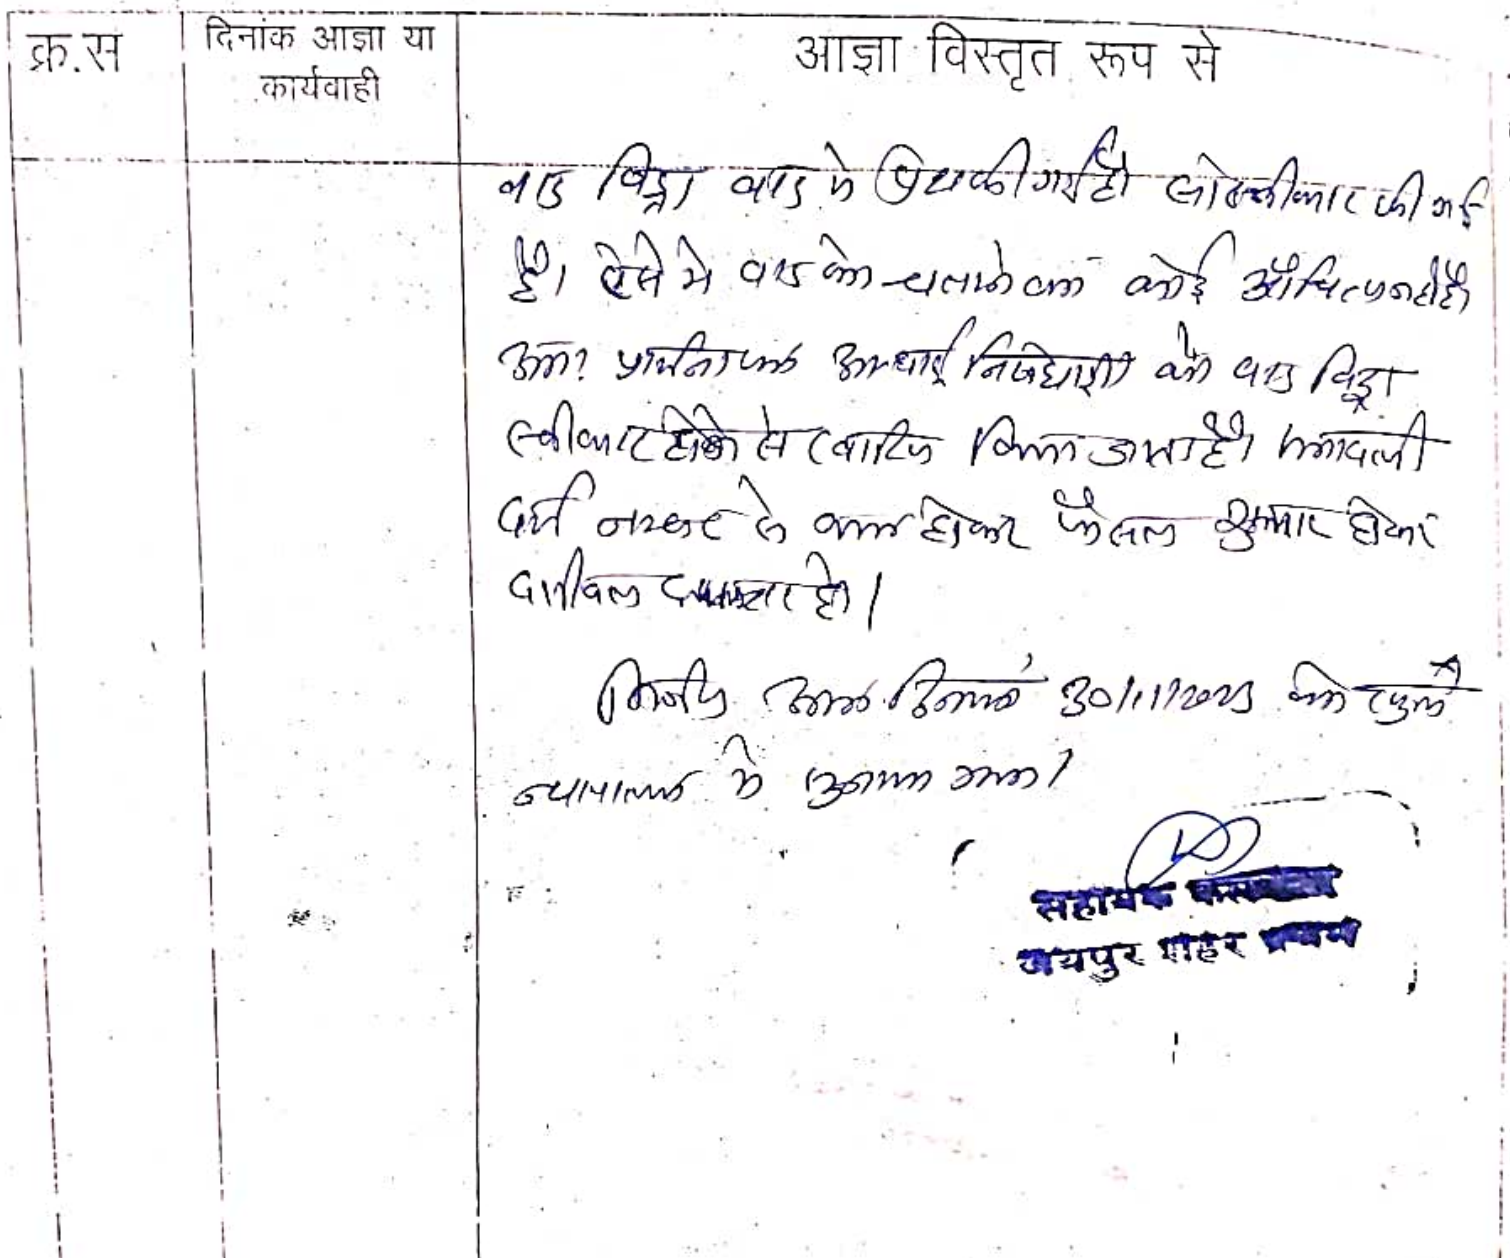 क्र.स
दिनांक आज्ञा या
कार्यवाही
आज्ञा विस्तृत रूप से
वाद विड्रा वाद में की गई है की गई
है। ऐसे में वाद को चलाने का कोई औचित्य नहीं है
अतः प्रार्थना पत्र अस्थाई निषेधाज्ञा को वाद विड्रा
स्वीकार होने से खारिज किया जाता है। पत्रावली
दर्ज नम्बर से कम होकर फैसल शुमार होकर
दाखिल दफ्तर हो।
निर्णय आज दिनांक 30/11/2023 को खुले
न्यायालय में सुनाया गया।
सहायक कलक्टर
जयपुर शहर प्रथम